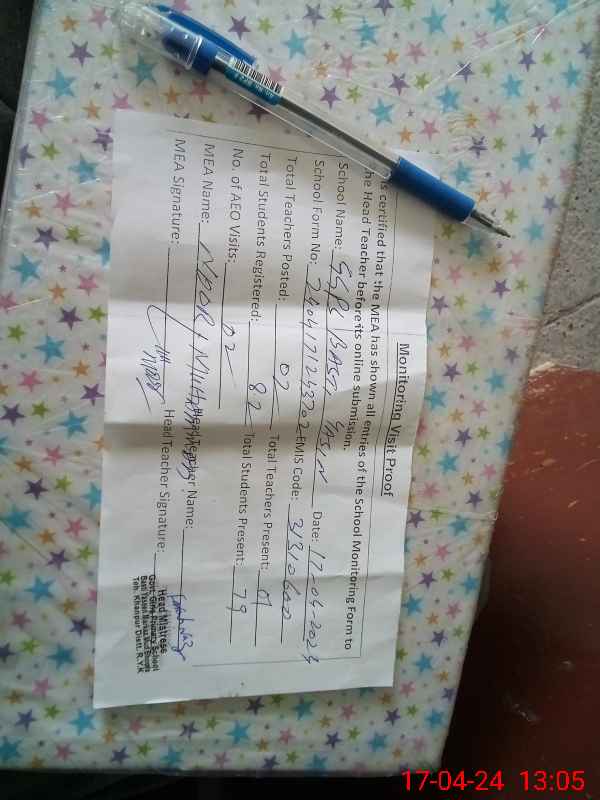 Monitoring Visit Proof
is certified that the MEA has shown all entries of the School Monitoring Form to
he Head Teacher before its online submission.
School Name: BASTI YASIN Date: 17-04-2024
School Form No: EMIS Code: 31310600
Total Teachers Posted: 02 Total Teachers Present:
Total Students Registered: 82 Total Students Present: 79
No. of AEO Visits: 02
MEA Name: Head Teacher Name:
MEA Signature: Head Teacher Signature:
Head Mistress
Govt. Girls Primary School
Teh. Khanpur Distt. R.Y.K
17-04-24 13:05